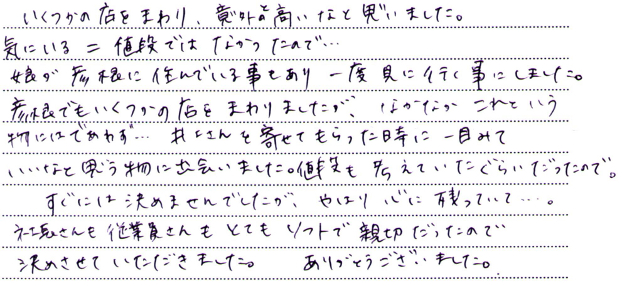 いくつかの店をまわり、意外と高いなと思いました。
気にいる = 値段では なかったので…
娘が 彦根に 住んでいる事もあり 一度 見に行く事にしました。
彦根でもいくつかの店を まわりましたが、なかなか これという
物にはであわず… 井上さんを寄せてもらった時に 一目みて
いいなと思う物に出会いました。値段も 考えていたぐらいだったので。
すぐには決めませんでしたが、やはり 心に 残っていて…。
社長さんも 従業員さんも とても ソフトで 親切だったので
決めさせていただきました。 ありがとうございました。